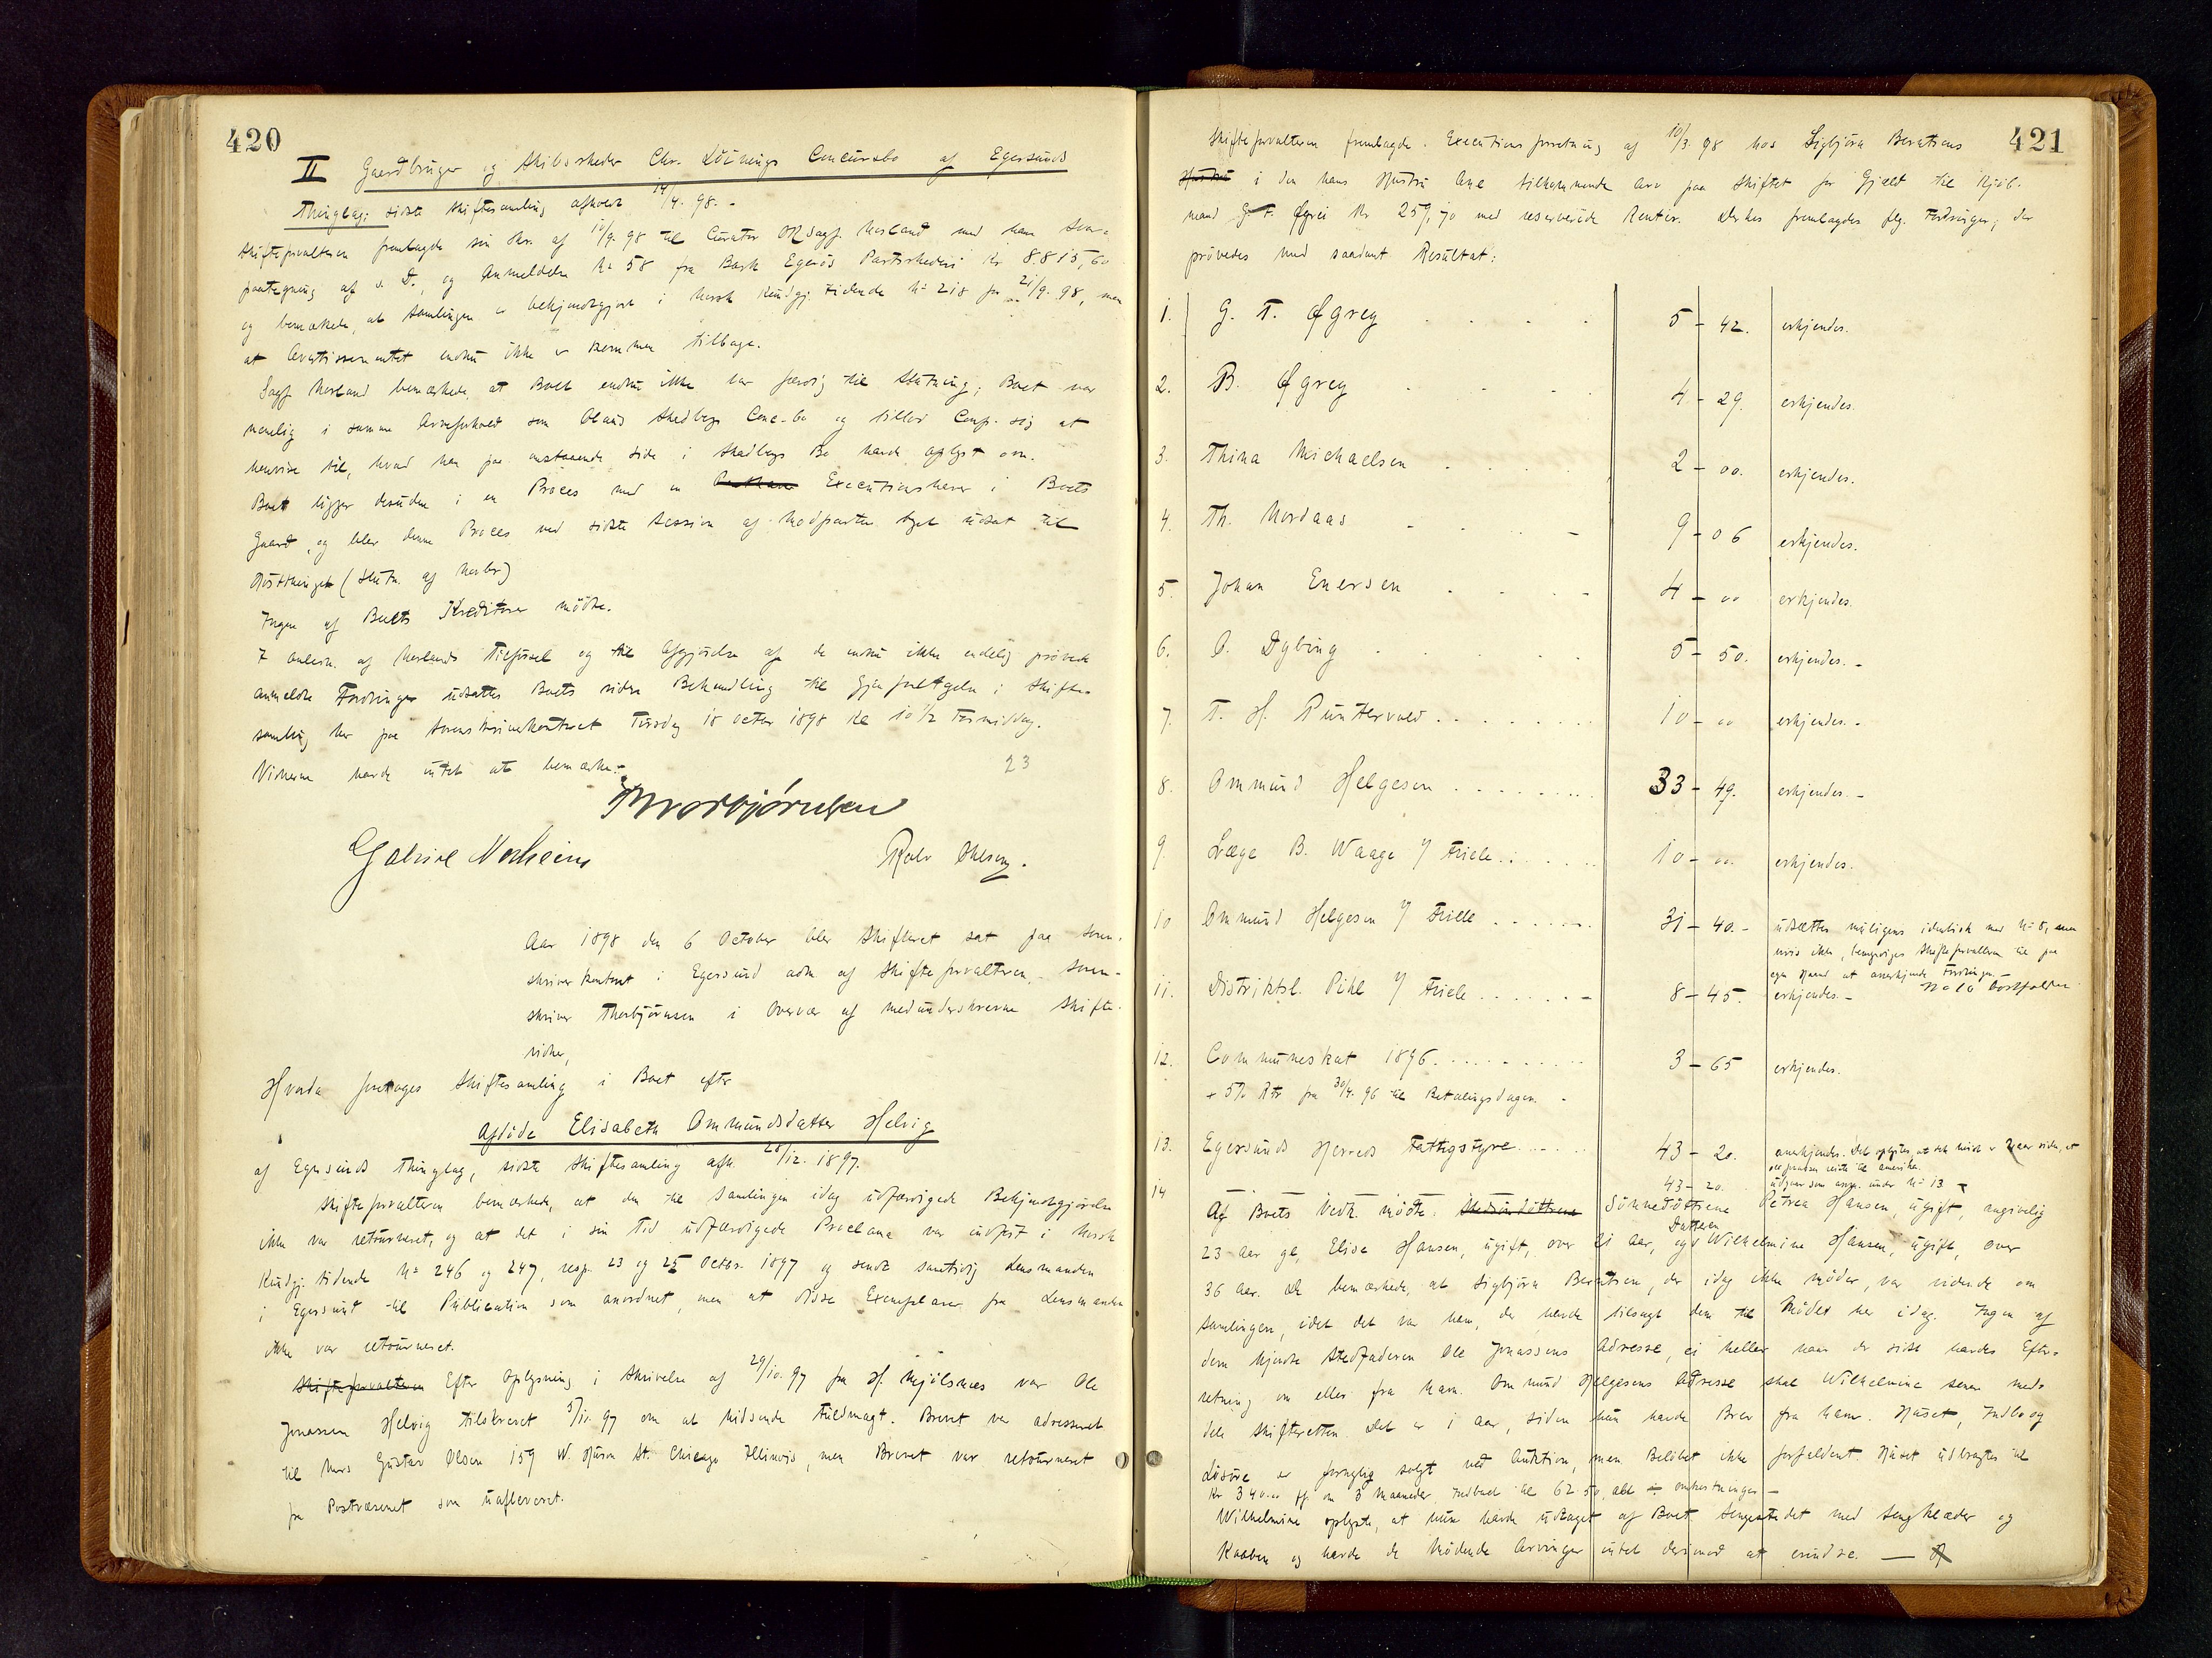 420
II Gaardbruger og Skibsrheder Chr. Löinings Concursbo af Egersunds
Thinglag; sidste skiftesamling afholdt 14/4. 98. -
Skifteforvalteren fremlagde sin Skr. af 10/9. 98 til Curator ORSagf. Morland med hans Svar-
paategning af s. D., og Anmeldelse No 58 fra Bark Egerös Partsrhederi Kr 8.815,60
og bemærkede, at Samlingen er bekjendtgjort i Norsk Kundgj. tidende No 218 for 21/9. 98, men
at Avertissementet endnu ikke er kommen tilbage.
Sagf. Morland bemærkede, at Boet endnu ikke var færdig til Slutning; Boet var
nemlig i samme Arveforhold som Olaus Skedbys Conc-bo og tillod Comp. sig at
henvise til, hvad han paa omstaaende Side i Skadbergs Bo havde oplyst om.
Boet ligger desuden i en Proces med en Executionshaver i Boets
Gaard, og blev denne Proces ved sidste Session af Modparten beg. udsat til
Höstthinget (Slutn. af Novbr)
Ingen af Boets Kreditorer mödte.
I Anledn. af Morlands Tilförsel og til Afgjörelse af de endnu ikke endelig prövede
anmeldte Fordringer udsattes Boets videre Behandling til Gjenforetagelse i Skifte-
samling her paa Sorenskriverkontoret Tirsdag 18 October 1898 Kl 10 1/2 Formiddag.
Vidnerne havde intet at bemærke.
23
Thorbjørnsen
Gabriel Nodheim
Aar 1898 den 6 October blev Skifteret sat paa Soren-
skriverkontoret i Egersund adm. af Skifteforvalteren, Soren-
skriver Thorbjörnsen i Overvær af medunderskrevne Skifte-
vidner,
Hvorda foretoges Skiftesamling i Boet efter
Afdöde Elisabeth Ommundsdatter Helvig
af Egersunds Thinglag, sidste Skiftesamling afh. 28/12. 1897.
Skifteforvalteren bemærkede, at den til Samlingen idag udfærdigede Bekjendtgjörelse
ikke var retourneret, og at det i sin Tid udfærdigede Proclama var indført i Norsk
Kundgj. tidende No 246 og 247, resp. 23 og 25 Octbr. 1897 og sendt samtidig Lensmanden
i Egersund til Publication som anordnet, men at disse Exemplarer fra Lensmanden
ikke var retourneret.
Skifteforvalteren Efter Oplysning i Skrivelse af 29/10. 97 fra H. Mjölsnes var Ole
Jonassen Helvig tilskrevet 5/11. 97 om at hidsende Fuldmagt. Brevet var adresseret
til Mrs Gustav Olsen 159 W. Huron St. Chicago Illinois, men Brevet var retourneret
fra Postvæsenet som uafleveret.
421
Skifteforvalteren fremlagde Executionsforretning af 10/3. 98 hos Sigbjörn Berntsens
Hustru i den hans Hustru Ane tilkommende Arv paa Skiftet for Gjæld til Kjöb-
mand G. T. Øgrei Kr. 259,70 med reserverede Renter. Derhos fremlagdes flg. Fordringer, der
prövedes med saadant Resultat:
1. G. T. Øgrey 5 - 42. erkjendes.
2. B. Øgrey 4 - 29. erkjendes.
3. Thina Michaelsen 2 - 00. erkjendes.
4. Th. Nordaas 9 - 06 erkjendes.
5. Johan Enersen 4 - 00 erkjendes.
6. O. Dybing 5 - 50. erkjendes. -
7. T. H. Puntervold 10 - 00 erkjendes. -
8. Ommund Helgesen 33 - 49. erkjendes. -
9. Læge B. Waage v/ Friele 10 - 00. erkjendes.
10 Ommund Helgesen v/ Friele 31 - 40. - udsættes muligens identisk med No 8, men
hvis ikke, bemyndiges Skifteforvalteren til paa
egen Haand at anerkjende Fordringen. -
No 10 bortfalder
11. Distriktsl. Pihl v/ Friele 8 - 45. erkjendes. -
12. Communeskat 1896. 3 - 65 erkjendes.
+ 5% Rtr fra 30/4. 96 til Betalingsdagen. -
13. Egersunds Herreds Fattigstyre 43 - 20. anerkjendes. Det oplystes, at det mindst er 2 aar siden, at
Ole Jonassen reiste til Amerika.
14 — — — 43 - 20. udgaar som anf. under No 13
Af Boets Vedk. mödte: Sönnedöttrene Petrea Hansen, ugift, angivelig
23 Aar gl, Elise Hansen, ugift, over 21 Aar, og Datteren Wilhelmine Hansen, ugift, over
36 Aar. De bemærkede, at Sigbjörn Berntsen, der idag ikke möder, var vidende om
Samlingen, idet det var ham, der havde tilsagt dem til Mödet her idag. Ingen af
dem kjendte Stedfaderen Ole Jonassens Adresse, ei heller naar de sidst havdes Efter-
retning om eller fra ham. Ommund Helgesens Adresse skal Wilhelmine senere med-
dele Skifteretten. Det er 1 aar, siden hun havde Brev fra ham. Huset, Indbo og
Lösöre er forøvrig solgt ved Auktion, men Belöbet ikke forfaldent. Huset udbragtes til
Kr 340.00 ff. om 3 Maaneder, Indbod til 62.50, alt ÷ omkostninger -
Wilhelmine oplyste, at hun havde udtaget af Boet Sengestedet med Sengklæder og
Kaaben og havde de mödende Arvinger intet derimod at erindre. —